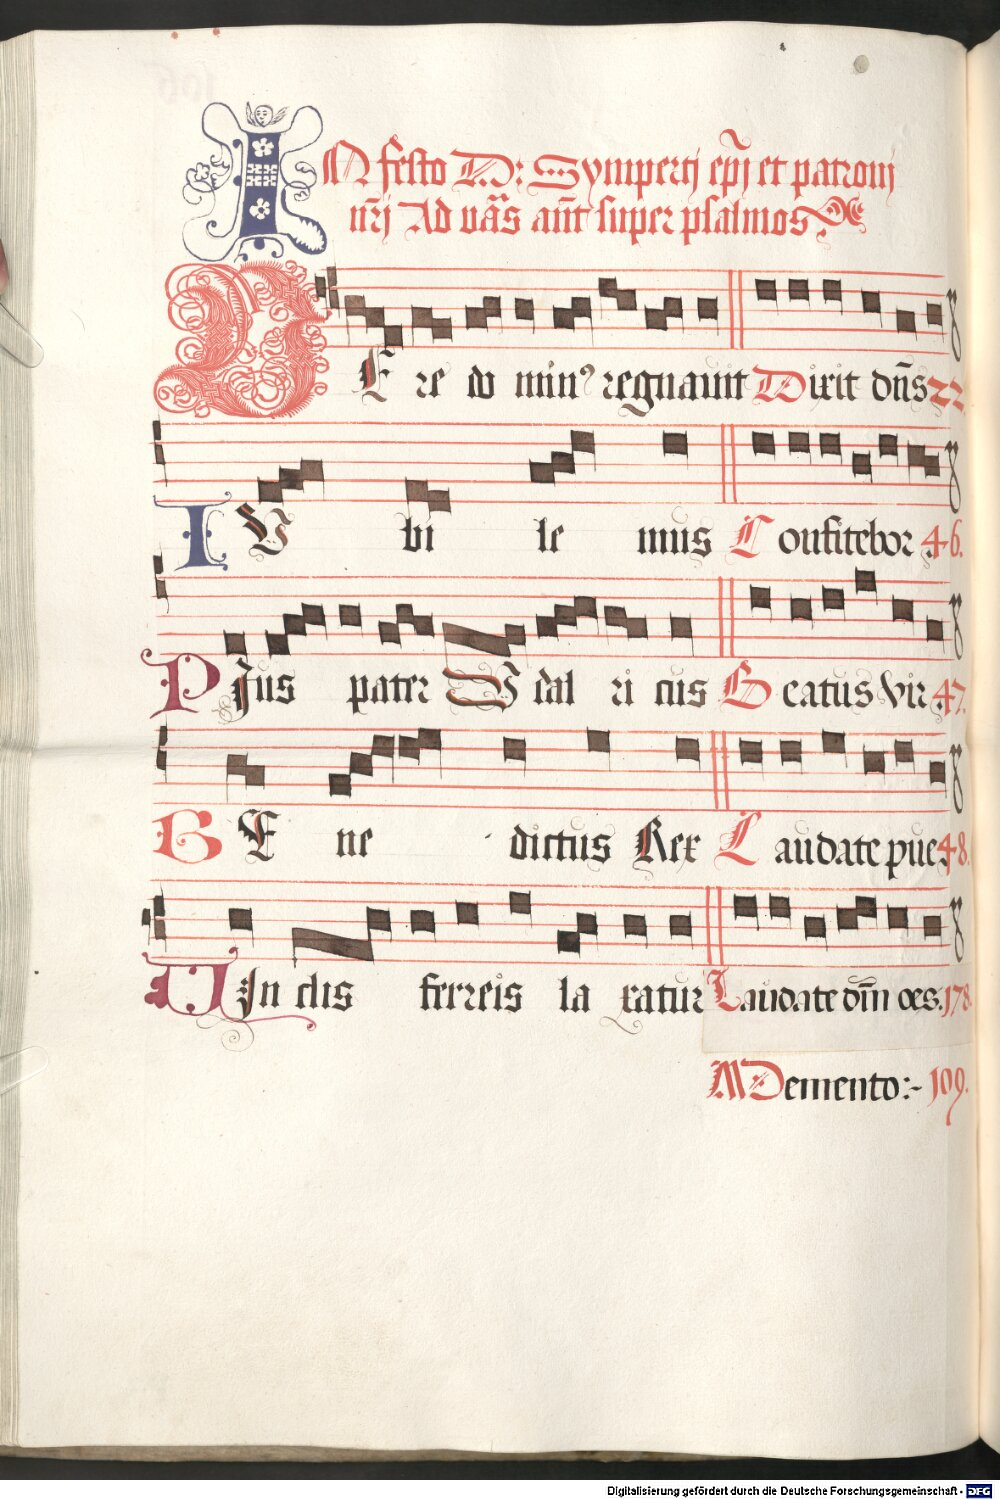 IN festo D: Sympertj epĩ et patronj
nr̃j Ad vãs añt super psalmos
VEre do min⁹ regnauit Dixit dñs 22
IV bi le mus Confitebor 46.
PJus pater Vdal ri cus Beatus vir 47.
BEne dictus Rex Laudate pue: 48.
VJn clis ferreis la xatur Laudate dm̃ oẽs. 178.
MDemento:- 109.
Digitalisierung gefördert durch die Deutsche Forschungsgemeinschaft - DFG